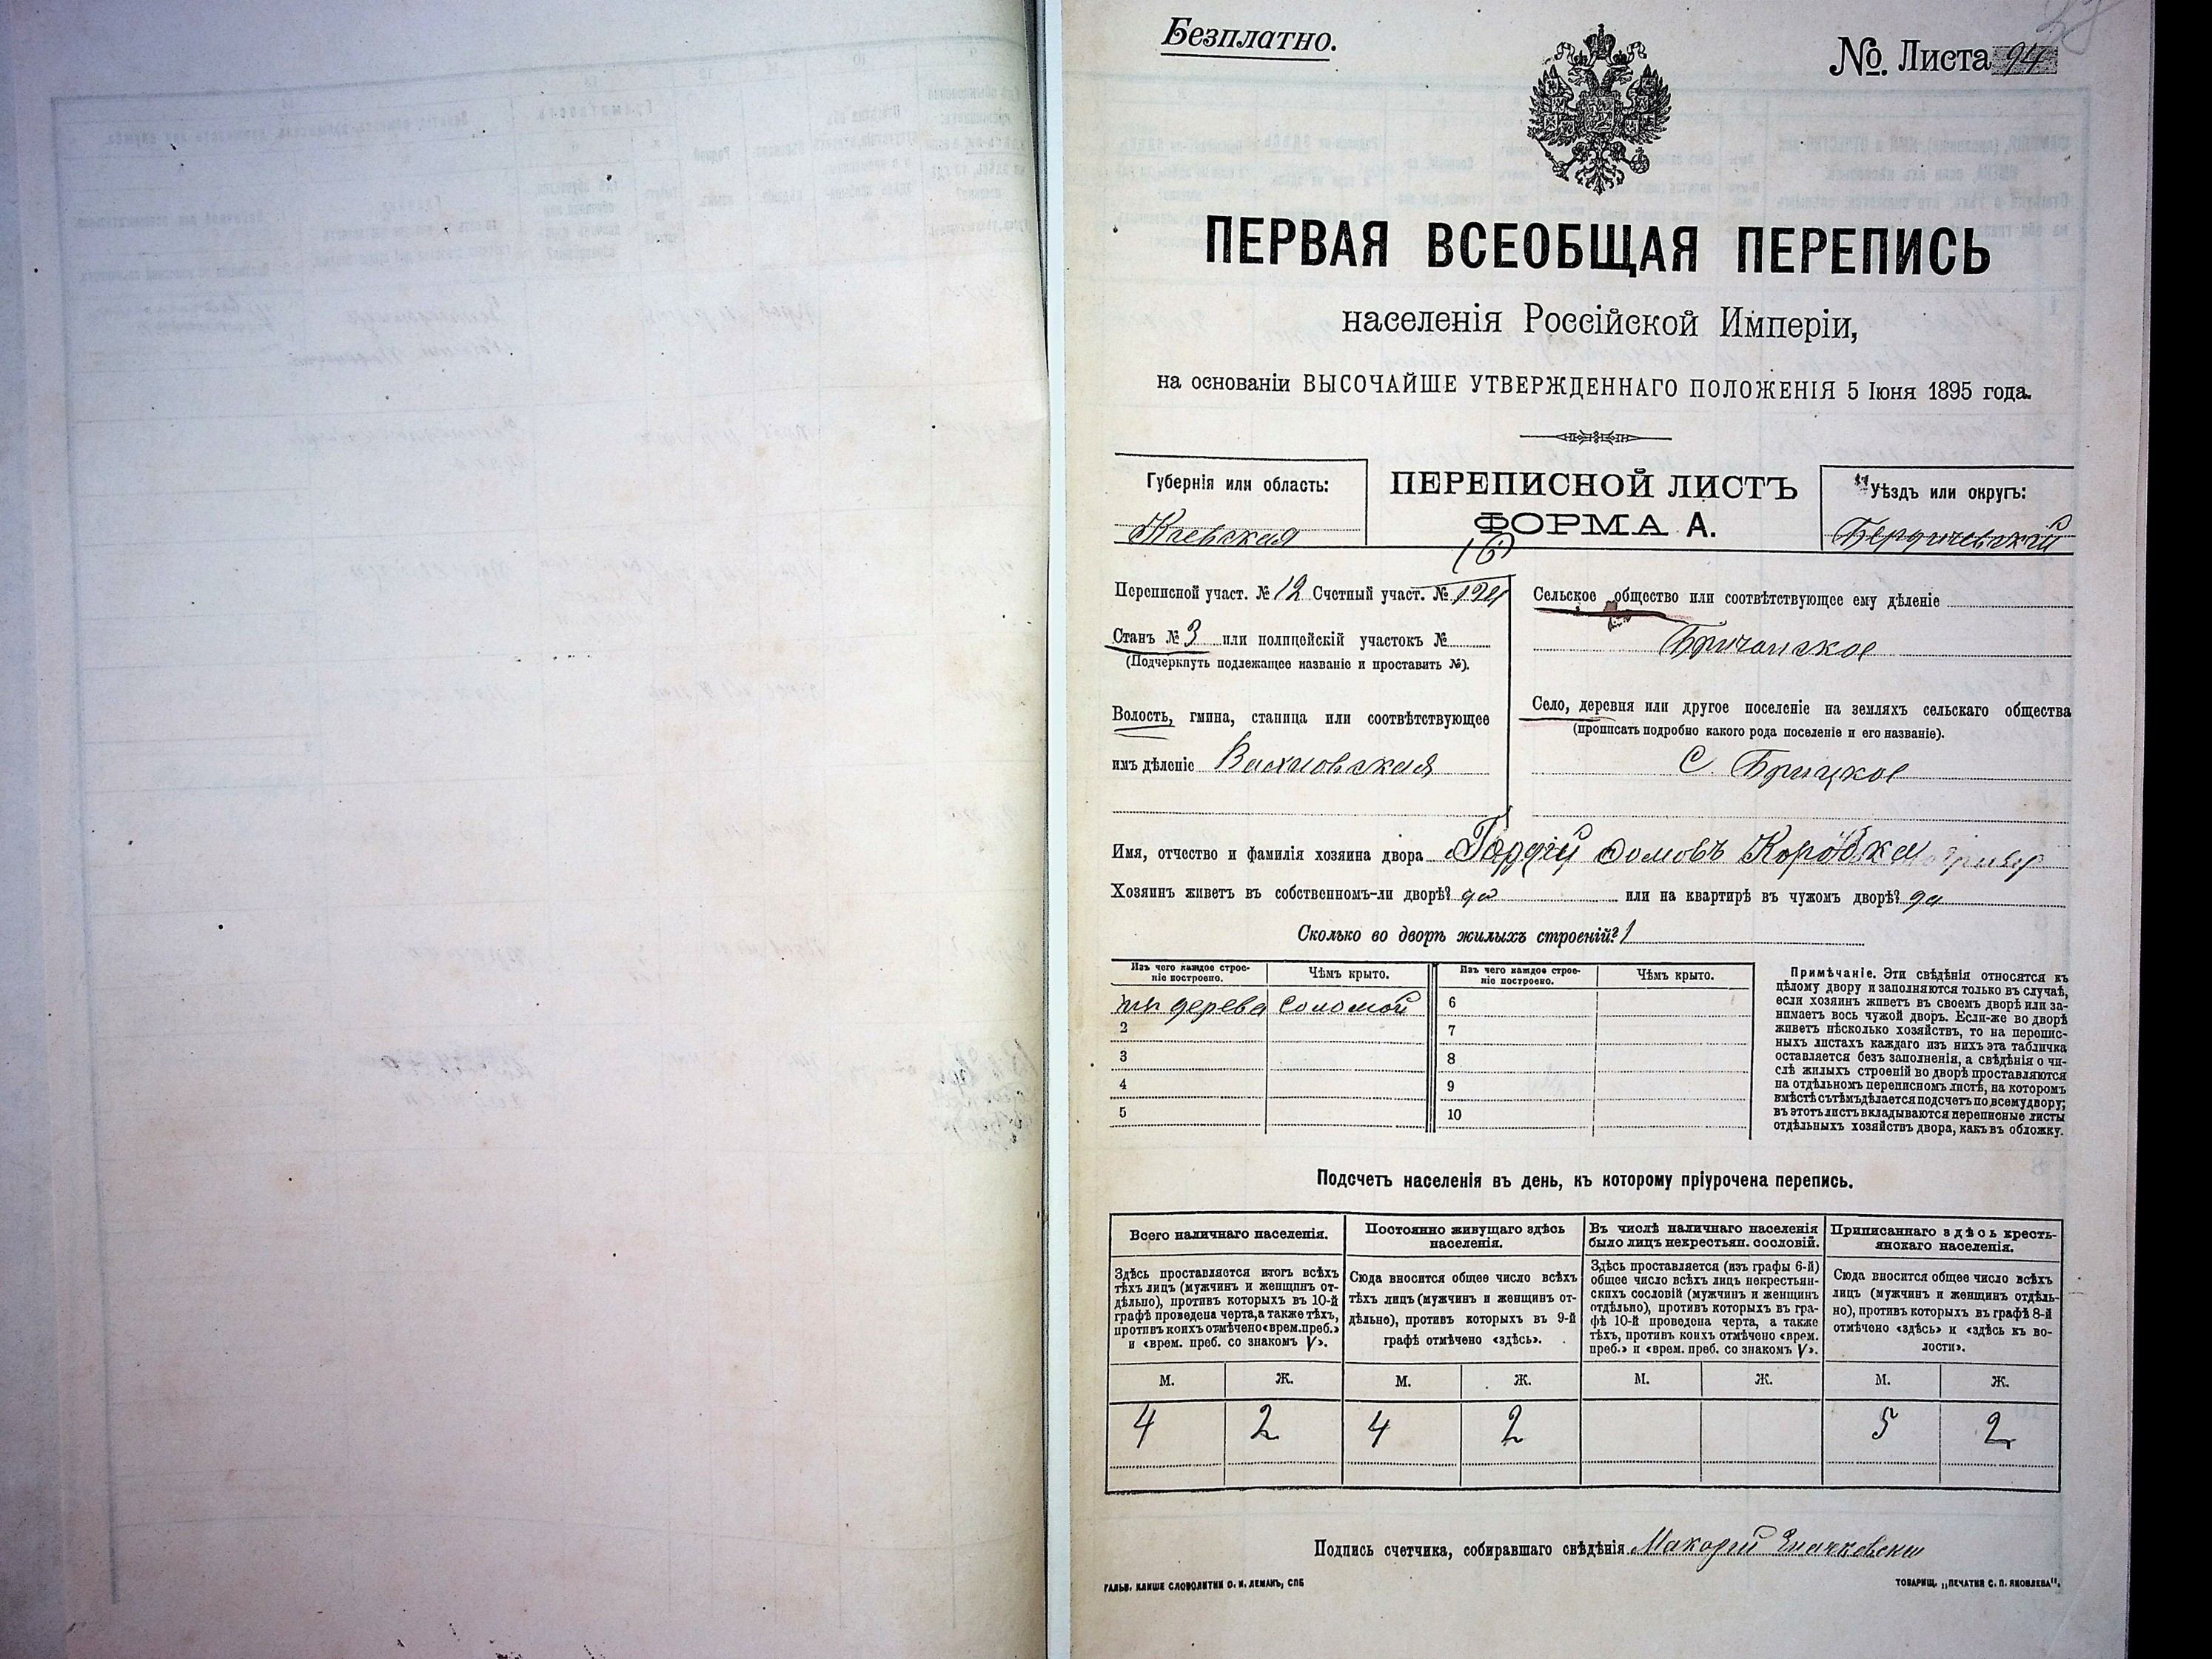 Безплатно.
№ Листа 94
ПЕРВАЯ ВСЕОБЩАЯ ПЕРЕПИСЬ
населенія Россійской Имперіи,
на основаніи ВЫСОЧАЙШЕ УТВЕРЖДЕННАГО ПОЛОЖЕНІЯ 5 Іюня 1895 года.
Губернія или область:
Кіевская
ПЕРЕПИСНОЙ ЛИСТЪ
ФОРМА А.
Уѣздъ или округъ:
Бердичевскій
Переписной участ. № 12 Счетный участ. №
Станъ № 3 или полицейскій участокъ №
(Подчеркнуть подлежащее названіе и проставить №).
Волость, гмина, станица или соотвѣтствующее
имъ дѣленіе Вахновская
Сельское общество или соотвѣтствующее ему дѣленіе
Бричанское
Село, деревня или другое поселеніе на земляхъ сельскаго общества
(прописать подробно какого рода поселеніе и его названіе).
С. Брицкое
Имя, отчество и фамилія хозяина двора Гордѣй Домовъ Коробка
Хозяинъ живетъ въ собственномъ-ли дворѣ? да или на квартирѣ въ чужомъ дворѣ? да
Сколько во дворѣ жилыхъ строеній? 1
Изъ чего каждое строе-
ніе построено.
Чѣмъ крыто.
изъ дерева соломой
2
3
4
5
Изъ чего каждое строе-
ніе построено.
Чѣмъ крыто.
6
7
8
9
10
Примѣчаніе. Эти свѣдѣнія относятся къ
цѣлому двору и заполняются только въ случаѣ,
если хозяинъ живетъ въ своемъ дворѣ или за-
нимаетъ весь чужой дворъ. Если-же во дворѣ
живетъ нѣсколько хозяйствъ, то на перепис-
ныхъ листахъ каждаго изъ нихъ эта табличка
оставляется безъ заполненія, а свѣдѣнія о чи-
слѣ жилыхъ строеній во дворѣ проставляются
на отдѣльномъ переписномъ листѣ, на которомъ
вмѣстѣ съ тѣмъ дѣлается подсчетъ по всему двору;
въ этотъ листъ вкладываются переписные листы
отдѣльныхъ хозяйствъ двора, какъ въ обложку.
Подсчетъ населенія въ день, къ которому пріурочена перепись.
Всего наличнаго населенія.
Здѣсь проставляется итогъ всѣхъ
тѣхъ лицъ (мужчинъ и женщинъ от-
дѣльно), противъ которыхъ въ 10-й
графѣ проведена черта, а также тѣхъ,
противъ коихъ отмѣчено «врем. преб.»
и «врем. преб. со знакомъ V».
М. Ж.
4 2
Постоянно живущаго здѣсь
населенія.
Сюда вносится общее число всѣхъ
тѣхъ лицъ (мужчинъ и женщинъ от-
дѣльно), противъ которыхъ въ 9-й
графѣ отмѣчено «здѣсь».
М. Ж.
4 2
Въ числѣ наличнаго населенія
было лицъ некрестьян. сословій.
Здѣсь проставляется (изъ графы 6-й)
общее число всѣхъ лицъ некрестьян-
скихъ сословій (мужчинъ и женщинъ
отдѣльно), противъ которыхъ въ гра-
фѣ 10-й проведена черта, а также
тѣхъ, противъ коихъ отмѣчено «врем.
преб.» и «врем. преб. со знакомъ V».
М. Ж.
Приписаннаго здѣсь кресть-
янскаго населенія.
Сюда вносится общее число всѣхъ
лицъ (мужчинъ и женщинъ отдѣль-
но), противъ которыхъ въ графѣ 8-й
отмѣчено «здѣсь» и «здѣсь къ во-
лости».
М. Ж.
5 2
Подпись счетчика, собиравшаго свѣдѣнія Макорій
ГАЛЬВ. КЛИШЕ СЛОВОЛИТНИ О. И. ЛЕМАНЪ, СПБ
ТОВАРИЩ. „ПЕЧАТНЯ С. П. ЯКОВЛЕВА“.